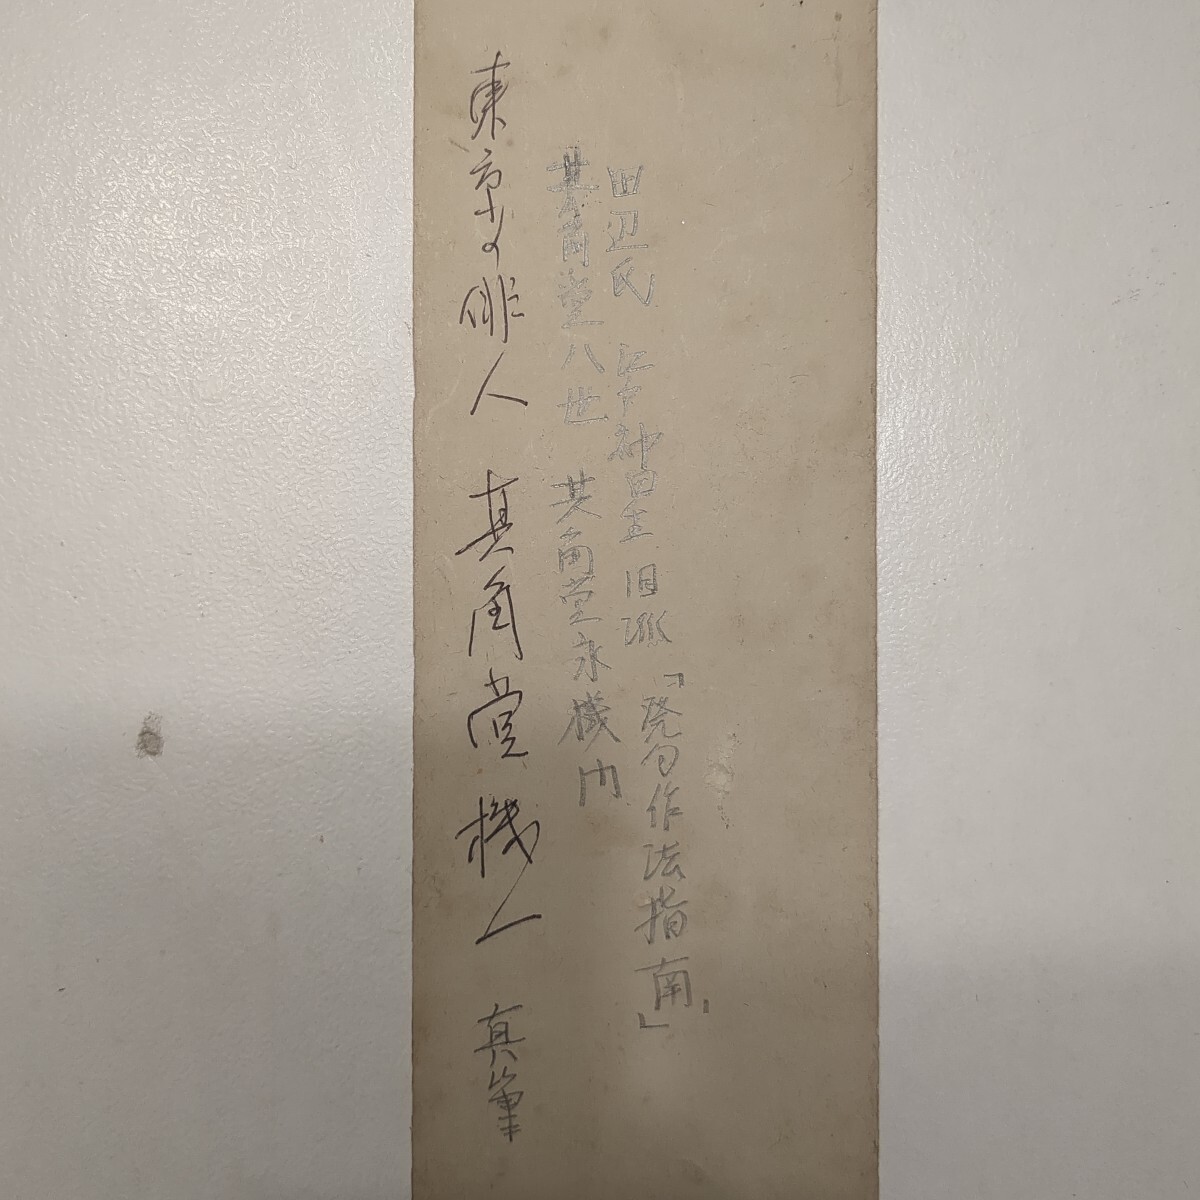 田辺氏 江戸神田生 旧派「発句作法指南」
其角堂八世 其角堂永機門
東京の俳人 其角堂機一 真筆